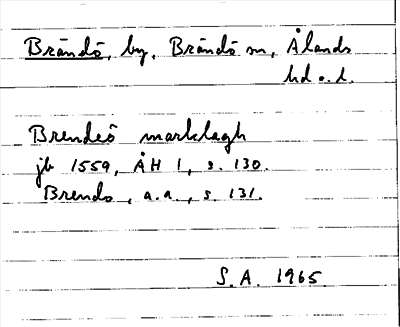 Brändö, by, Brändö sn, Ålands
hd o. l.
Brendeö marklagh
jb 1559, ÅH 1, s. 130.
Brendo, a.a., s. 131.
S.A. 1965